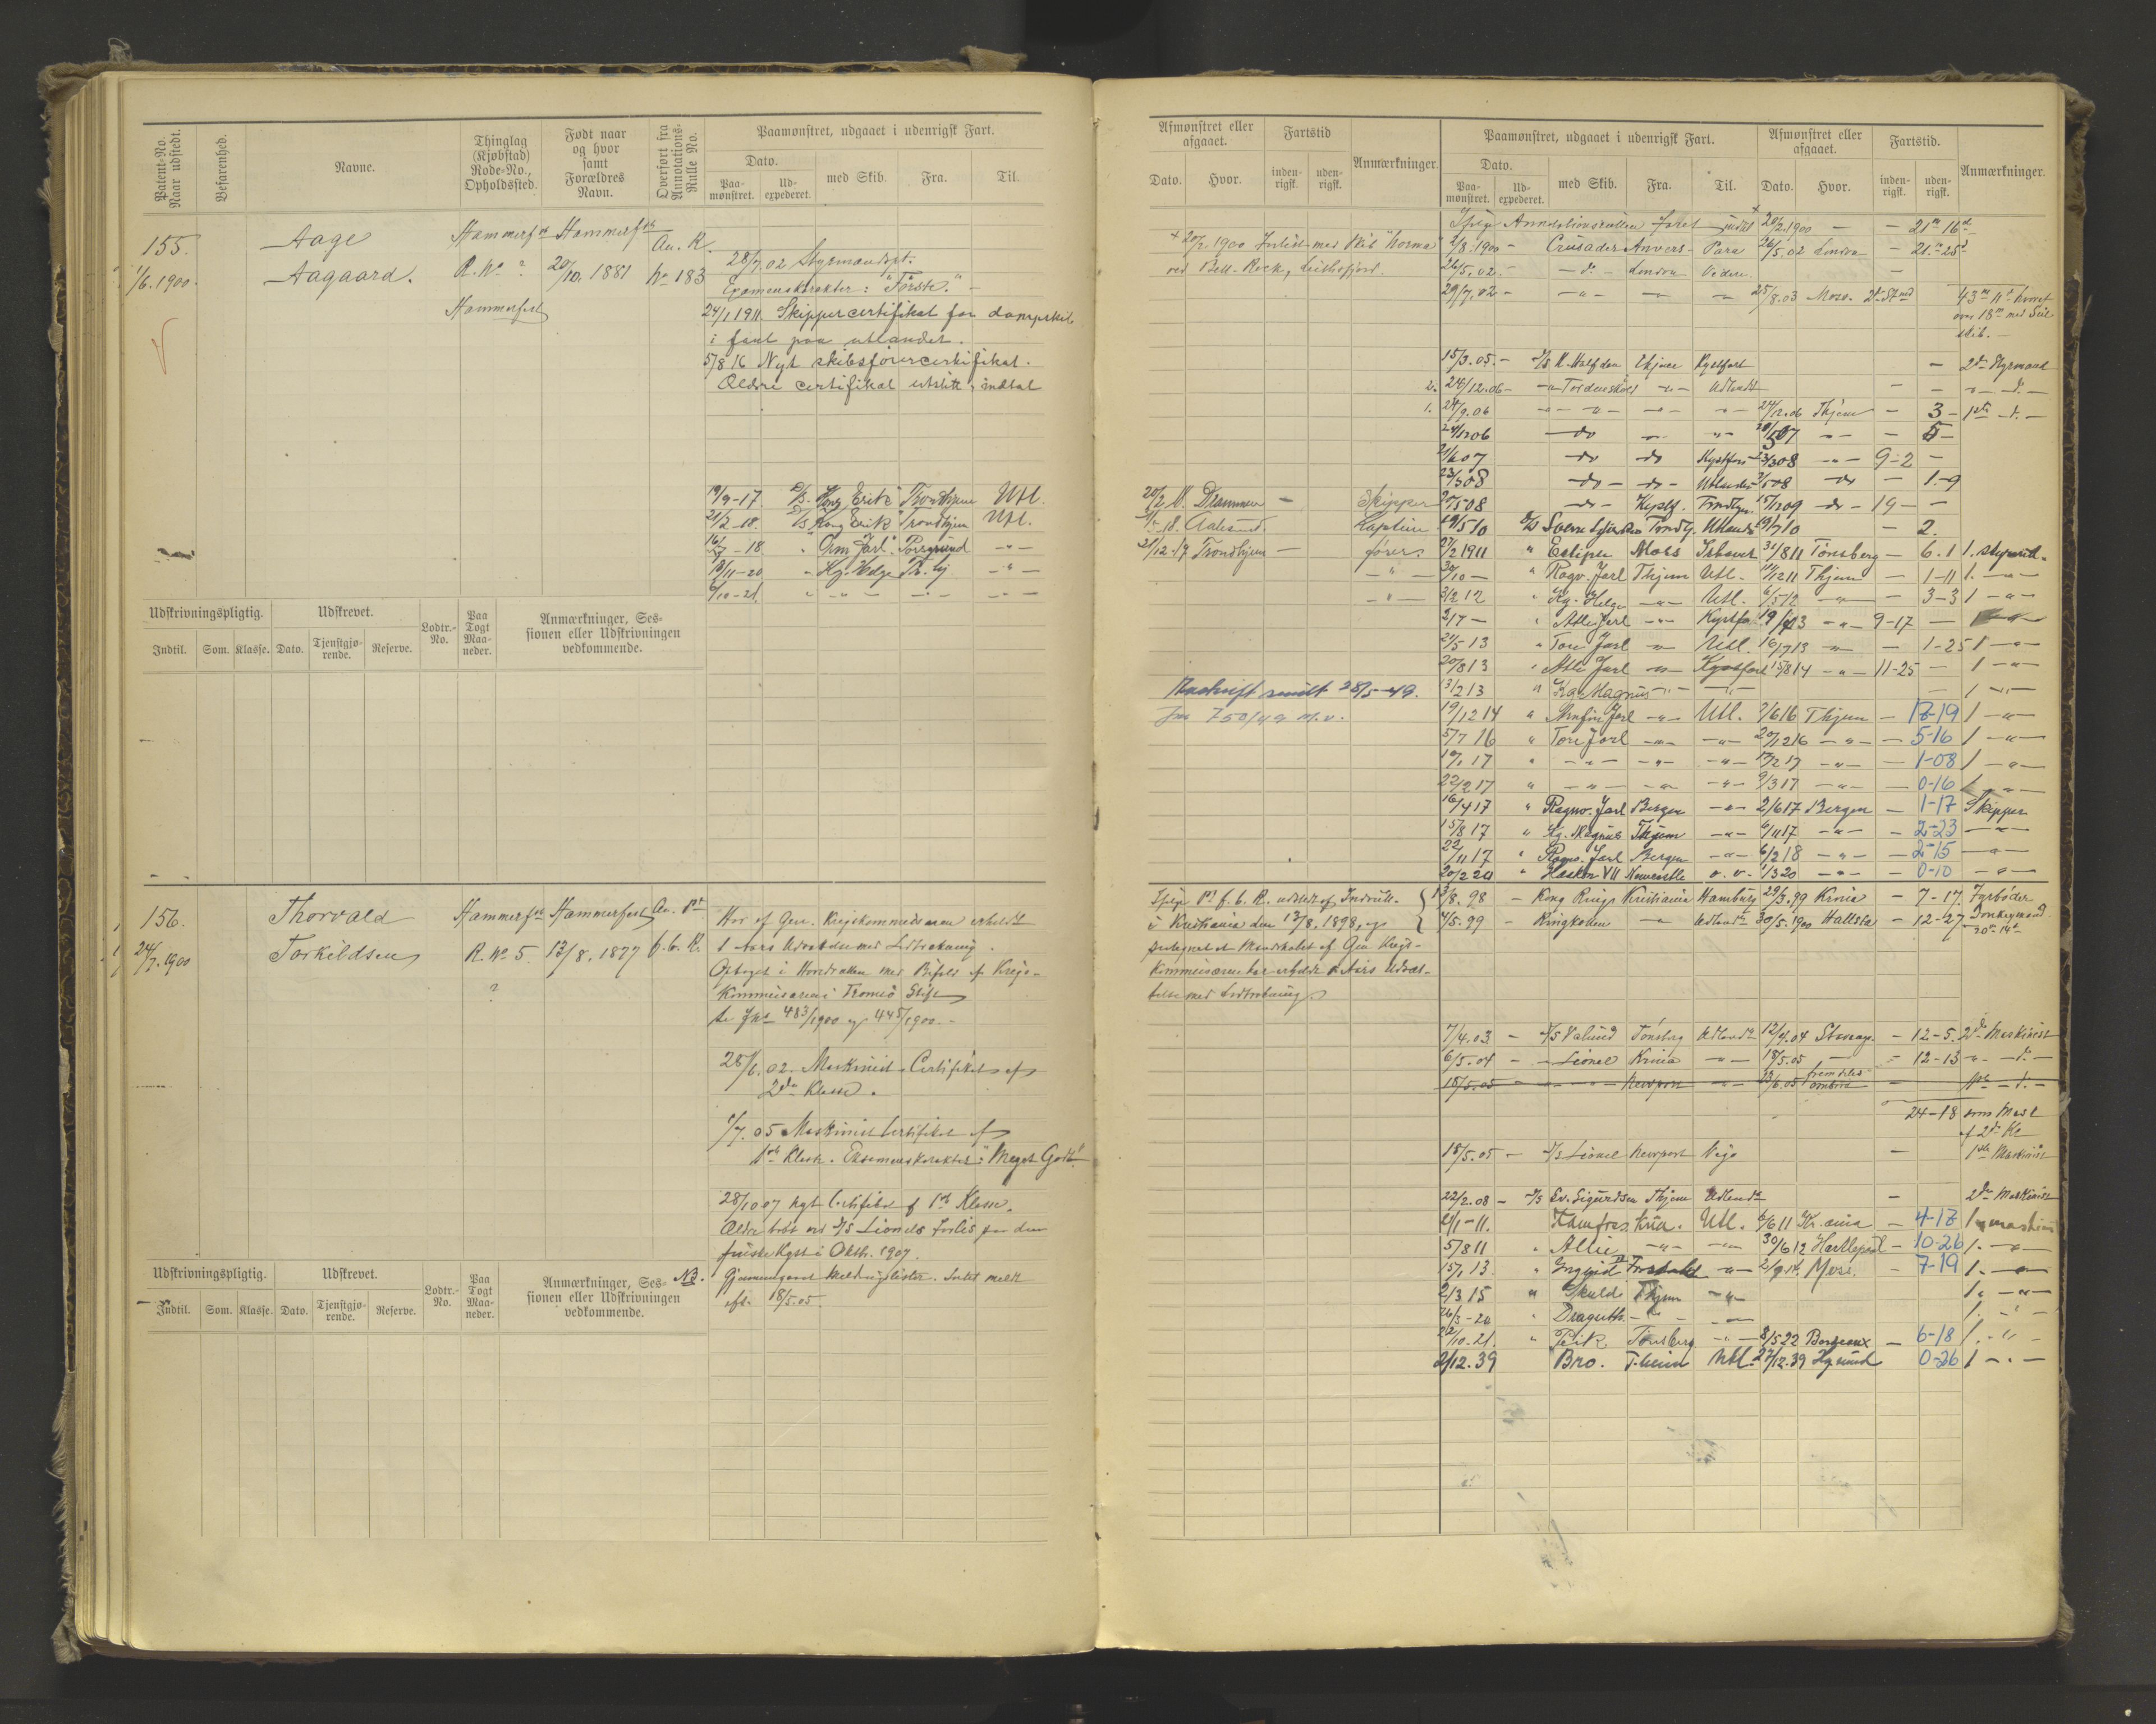 Patent-No. Naar udstedt.
Befarenhed.
Navne.
Thinglag (Kjøbstad) Rode-No., Opholdssted.
Født naar og hvor samt Forældres Navn.
Overført fra Annotations-Rulle No.
Paamønstret, udgaaet i udenrigsk Fart.
Dato.
Paa-mønstret.
Ud-expederet.
med Skib.
Fra.
Til.
155.
1/6.1900.
Aage
Aagaard.
Hammerfst
R. No ?
Hammerfest
Hammerfest
20/10. 1881
An. R.
No 183
28/7.02 Styrmandspt.
Examenskarakter: "Første."
24/1 1911. Skippercertifikat for dampskib
i fart paa utlandet.
5/8 16 Nyt skibsførercertifikat.
Ældre certifikat utslitt, indtat
19/9-17. D/S. Kong Erik Trondhjem Utl.
21/2-18. D/S Kong Erik Trondhjem Utl.
-18 " Orm Jarl Porsgrund -"-
18/11-20 " Kg. Helge Tr.hj -"-
6/10-21. " -"- -"- -"-
Udskrivningspligtig.
Udskrevet.
Lodtr.-No.
Paa Togt Maa-neder.
Anmærkninger, Ses-
sionen eller Udskrivningen
vedkommende.
Indtil. Som. Klasse. Dato. Tjenstgjø-rende. Reserve.
156.
24/7.1900
Thorvald
Torkildsen
Hammerfst
R. No 5.
?
Hammerfest
13/8. 1877
An. Pt
f. b. R.
Har af Gen. Krigskommissæren erholdt
1 Aars Udsættelse med Lodtrækning.
Optaget i Hovedrullen med Bifald af Krigs-
kommissæren i Tromsø Stift
se Jn 483/1900 og 445/1900.
28/6.02. Maskinist-Certifikat af
2den Klasse.
1/7.05 Maskinistcertifikat af
1ste Klasse. Eksamenskarakter: "Meget Godt."
28/10 07 nyt Certifikat af 1ste Klasse.
Ældre tabt ved D/S Lionels Forlis paa den
friske Kyst i Oktbr. 1907.
NB. Gjennemgaaet Meldingslister. Intet meldt
eft. 18/5.05.
Udskrivningspligtig.
Udskrevet.
Lodtr.-No.
Paa Togt Maa-neder.
Anmærkninger, Ses-
sionen eller Udskrivningen
vedkommende.
Indtil. Som. Klasse. Dato. Tjenstgjø-rende. Reserve.
Afmønstret eller afgaaet.
Dato. Hvor.
Fartstid
inden-rigsk. uden-rigsk.
Anmærkninger.
Paamønstret, udgaaet i udenrigsk Fart.
Dato.
Paa-mønstret. Ud-expederet.
med Skib. Fra. Til.
Afmønstret eller afgaaet.
Dato. Hvor.
Fartstid.
inden-rigsk. uden-rigsk.
Anmærkninger.
Ifølge Annotationsrullen faret indtil 20/2.1900 - - 21m 16d
+ 20/2 1900 Forlist med Skib "Norma"
ved Bell-Rock, Leithsfjord.
2/8.1900 - Crusader Anvers - Para 26/5.02 London - 21m 25d
26/5.02. - -do- London Videre. -
29/7.02 - -"- -"- -"- 25/8.03 Moss.
43m 11d hvoraf
over 18m med Seil
skib. -
15/3.05. - D/S K. Halfdan Thjem Kystfart - 2den Styrmand
2. 24/12.06 - -"- Tordenskjold -"- Udlandet - - -"- -d.-
1. 24/9.06 -"- -"- -"- -"- 24/12.06 Thjem - 3- 1ste -d.-
24/12 06 -do -"- -"- -"- - 5-
-do -do Kystfart 23/3 08 -"- 9-2 -
23/3 08 -do- do- Utlandet -do - 1-9
20/5 08 -do- Kystf. Trondhjem 15/12 09 -do- 19 - -
25/2 18. Drammen - Skipper
-18. Aalesund. Kaptein
21/12-19 Trondhjem - fører.
-"-
-"-
19/5 10 D/S Sverre Sigurdson Trondhj. Utlandet 19/7 10 - 2.
27/2 1911 " Eclipse Moss 31/8 11 Tønsberg - 6.1 1. styrmd.
30/10 - " Ragv. Jarl Thjem Utl. - 11/12 11 Thjem - 1-11 1. -"-
3/2 12 " Kg. Helge -"- Utl. 6/5 12 -"- - 3-3 1 -"-
2/7 - " Atle Jarl -"- Kystfa 19/4 13 -"- 9-17 -
21/5 13 " Tore Jarl -"- Utl. 16/7 13 -"- - 1-25 1 -"-
20/8 13 " Atle Jarl -"- Kystfart 15/8 14 -"- 11-25 - 1 -"-
Avskrift sendt 28/5-49.
Jnr 750/49 M.v.
13/2 13 " Kg. Magnus -"- -"- - 1 -"-
19/12 14 " Arnfin Jarl -"- Utl. 7/6 16 Thjem - 17-19 1 -"-
5/7 16 " Tore Jarl -"- -"- 20/12 16 -"- - 5-16 1 -"-
10/1 17 " -"- -"- -"- 17/2 17 -"- - 1-08 1 -"-
22/2 17 " -"- -"- -"- 9/3 17 -"- - 0-16 1 -"-
16/4 17 " Ragnv. Jarl Bergen -"- 2/6 17 Bergen - 1-17 Skipper
15/8 17 " Kg. Magnus Thjem -"- 6/11 17 -"- - 2-23 -"-
22/11 17 " Ragnv. Jarl Bergen -"- 6/2 18 -"- - 2-15 -"-
20/2 20 " Haakon VII Newcastle v.v. 1/3 20 -"- - 0-10 -"-
Ifølge Pt f. b. R. udstedt af Indrull.
i Kristiania den 13/8. 1898, og
Kommissæren har erholdt 1 Aars Udsæt-
telse med Lodtrækning.
13/8. 98 - Kong Ring Kristiania Hamburg 29/3.99 Krania - 7-17. Fyrbøder.
4/5.99 - Ringkollen -"- Udlandet 30/5.1900 Hallsta - 12-27 Donkeymand.
20m 14d
7/4.03 - D/S Valund Tønsberg Udlandet 12/4.04 - 12-5. 2den Maskinist
6/5.04 - -"- Lionel Krania -"- 18/5.05 - - 12-13 -"- -d.-
18/5.05 - -"- -"- Newport -"- 23/6.05 fremdeles ombord - 1ste -d.-
24-18 som Mask
af 2den Kl
18/5.05 - D/S Lionel Newport Vigo - 1ste Maskinist
22/2.08 - D/S Sv. Sigurdson Thjem Udlandet - 2den Maskinist
2/1-11. Kria. Utl. 6/6 11 Kr.ania - 4-17 1 maskinist
5/8 11 " Allie -"- -"- 30/6 12 Hartlepool - 10-26 1. -"-
15/1 13. " Yngvid -"- 2/9 14. Moss. - 7-19 1. -"-
2/3 15 " Skuld Thjem -"- 1. -"-
26/3-20 " -"- -"- 1. -"-
22/10.21. " Peik Tønsberg -"- 8/5 22 Bordeaux - 6-18 1. -"-
2/12.39 Bro. T.heim Utl. 27/12.39 - 0-26 1 -"-